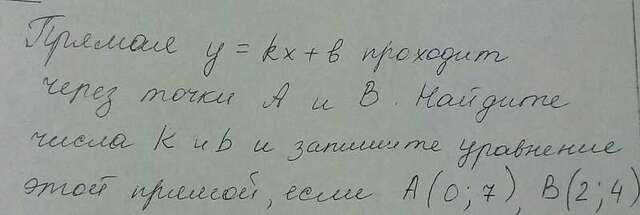 Прямая y = kx + b проходит
через точки A и B. Найдите
числа K и b и запишите уравнение
этой прямой, если A(0; 7), B(2; 4)